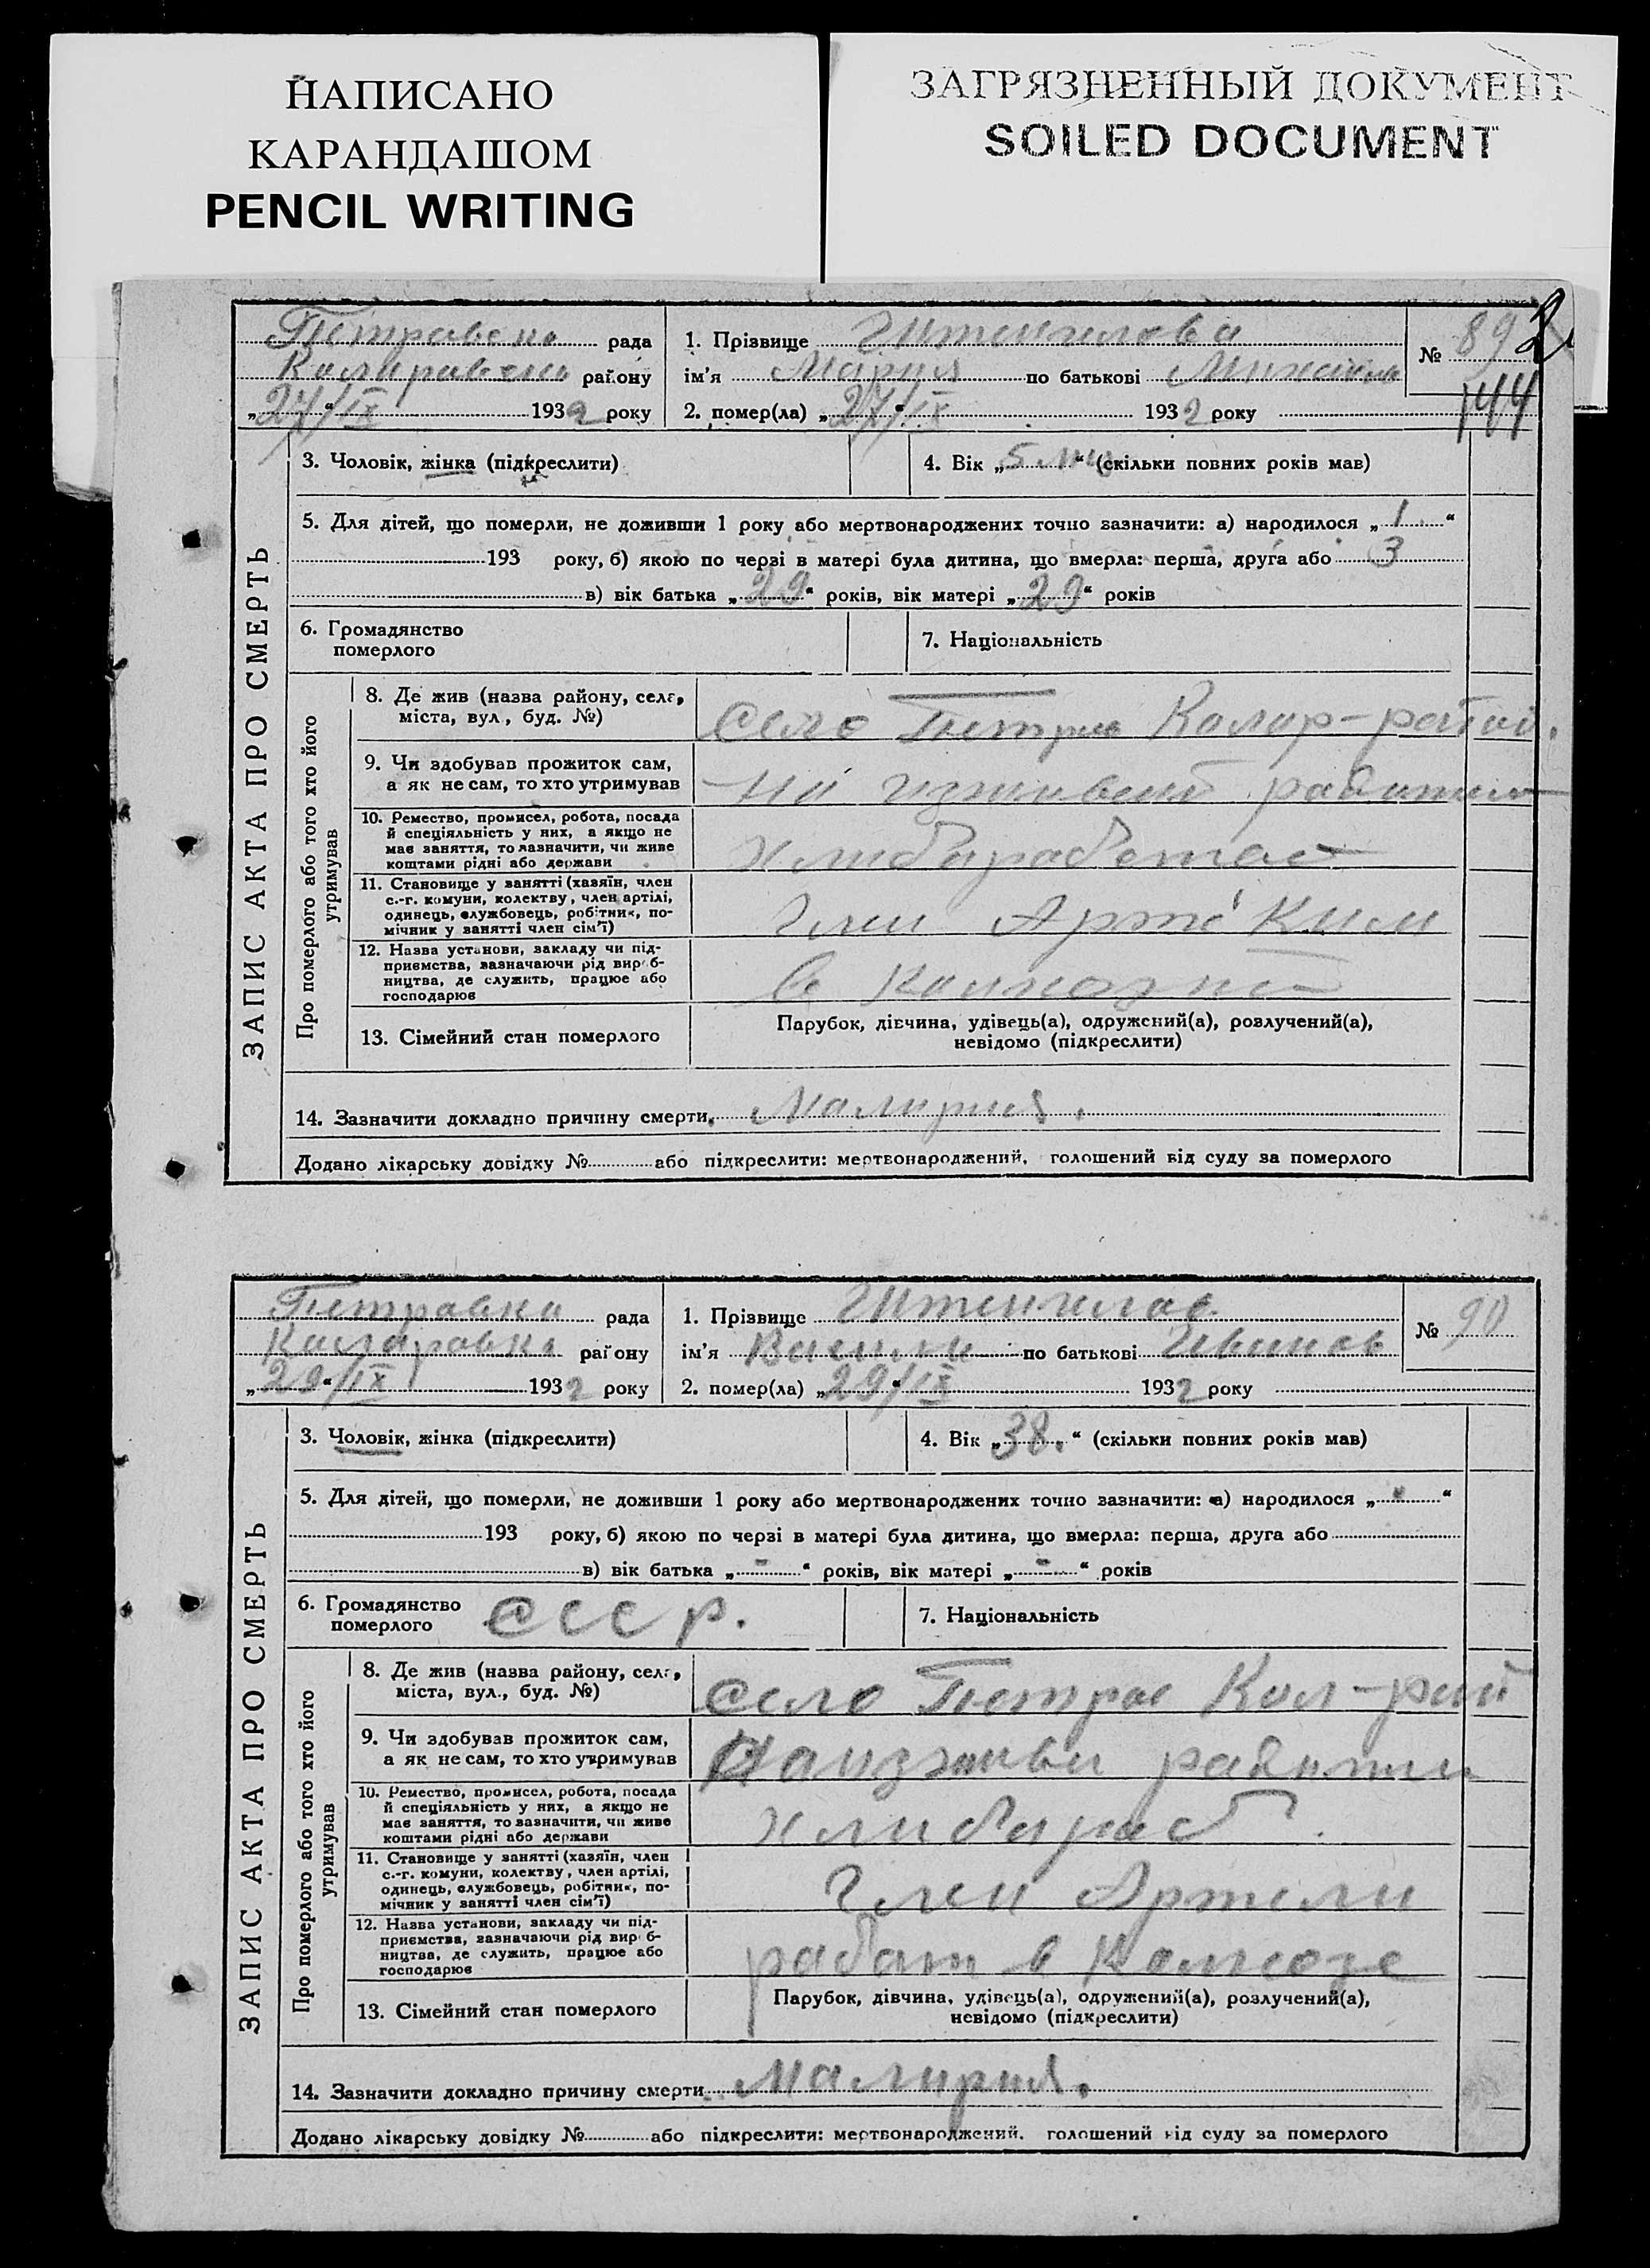 НАПИСАНО
КАРАНДАШОМ
PENCIL WRITING
ЗАГРЯЗНЕННЫЙ ДОКУМЕНТ
SOILED DOCUMENT
рада
району
„27/IX“ 1932 року
1. Прізвище
ім'я Мария по батькові
2. помер(ла) „27/IX“ 1932 року
№ 89
2
144
ЗАПИС АКТА ПРО СМЕРТЬ
3. Чоловік, жінка (підкреслити)
4. Вік „5 “ (скільки повних років мав)
5. Для дітей, що померли, не доживши 1 року або мертвонароджених точно зазначити: а) народилося „1“
193 року, б) якою по черзі в матері була дитина, що вмерла: перша, друга або 3
в) вік батька „29“ років, вік матері „29“ років
6. Громадянство
померлого
7. Національність
Про померлого або того хто його
утримував
8. Де жив (назва району, села,
міста, вул., буд. №)
село
9. Чи здобував прожиток сам,
а як не сам, то хто утримував
10. Ремество, промисел, робота, посада
й спеціяльність у них, а якщо не
має заняття, то зазначити, чи живе
коштами рідні або держави
11. Становище у занятті (хазяїн, член
с.-г. комуни, колективу, член артілі,
одинець, службовець, робітник, по-
мічник у занятті член сім'ї)
Член
12. Назва установи, закладу чи під-
приємства, зазначаючи рід вироб-
ництва, де служить, працює або
господарює
в
13. Сімейний стан померлого
Парубок, дівчина, удівець(а), одружений(а), розлучений(а),
невідомо (підкреслити)
14. Зазначити докладно причину смерти Малирия.
Додано лікарську довідку № або підкреслити: мертвонароджений, голошений від суду за померлого
Петравка рада
району
„29“/IX 1932 року
1. Прізвище
ім'я по батькові Иванов
2. помер(ла) „29/IX“ 1932 року
№ 90
ЗАПИС АКТА ПРО СМЕРТЬ
3. Чоловік, жінка (підкреслити)
4. Вік „38.“ (скільки повних років мав)
5. Для дітей, що померли, не доживши 1 року або мертвонароджених точно зазначити: а) народилося „-“
193 року, б) якою по черзі в матері була дитина, що вмерла: перша, друга або
в) вік батька „-“ років, вік матері „-“ років
6. Громадянство
померлого
СССР.
7. Національність
Про померлого або того хто його
утримував
8. Де жив (назва району, села,
міста, вул., буд. №)
село
9. Чи здобував прожиток сам,
а як не сам, то хто утримував
10. Ремество, промисел, робота, посада
й спеціяльність у них, а якщо не
має заняття, то зазначити, чи живе
коштами рідні або держави
11. Становище у занятті (хазяїн, член
с.-г. комуни, колективу, член артілі,
одинець, службовець, робітник, по-
мічник у занятті член сім'ї)
Член Артели
12. Назва установи, закладу чи під-
приємства, зазначаючи рід вироб-
ництва, де служить, працює або
господарює
работ в Колхозе
13. Сімейний стан померлого
Парубок, дівчина, удівець(а), одружений(а), розлучений(а),
невідомо (підкреслити)
14. Зазначити докладно причину смерти Малирия.
Додано лікарську довідку № або підкреслити: мертвонароджений, голошений від суду за померлого